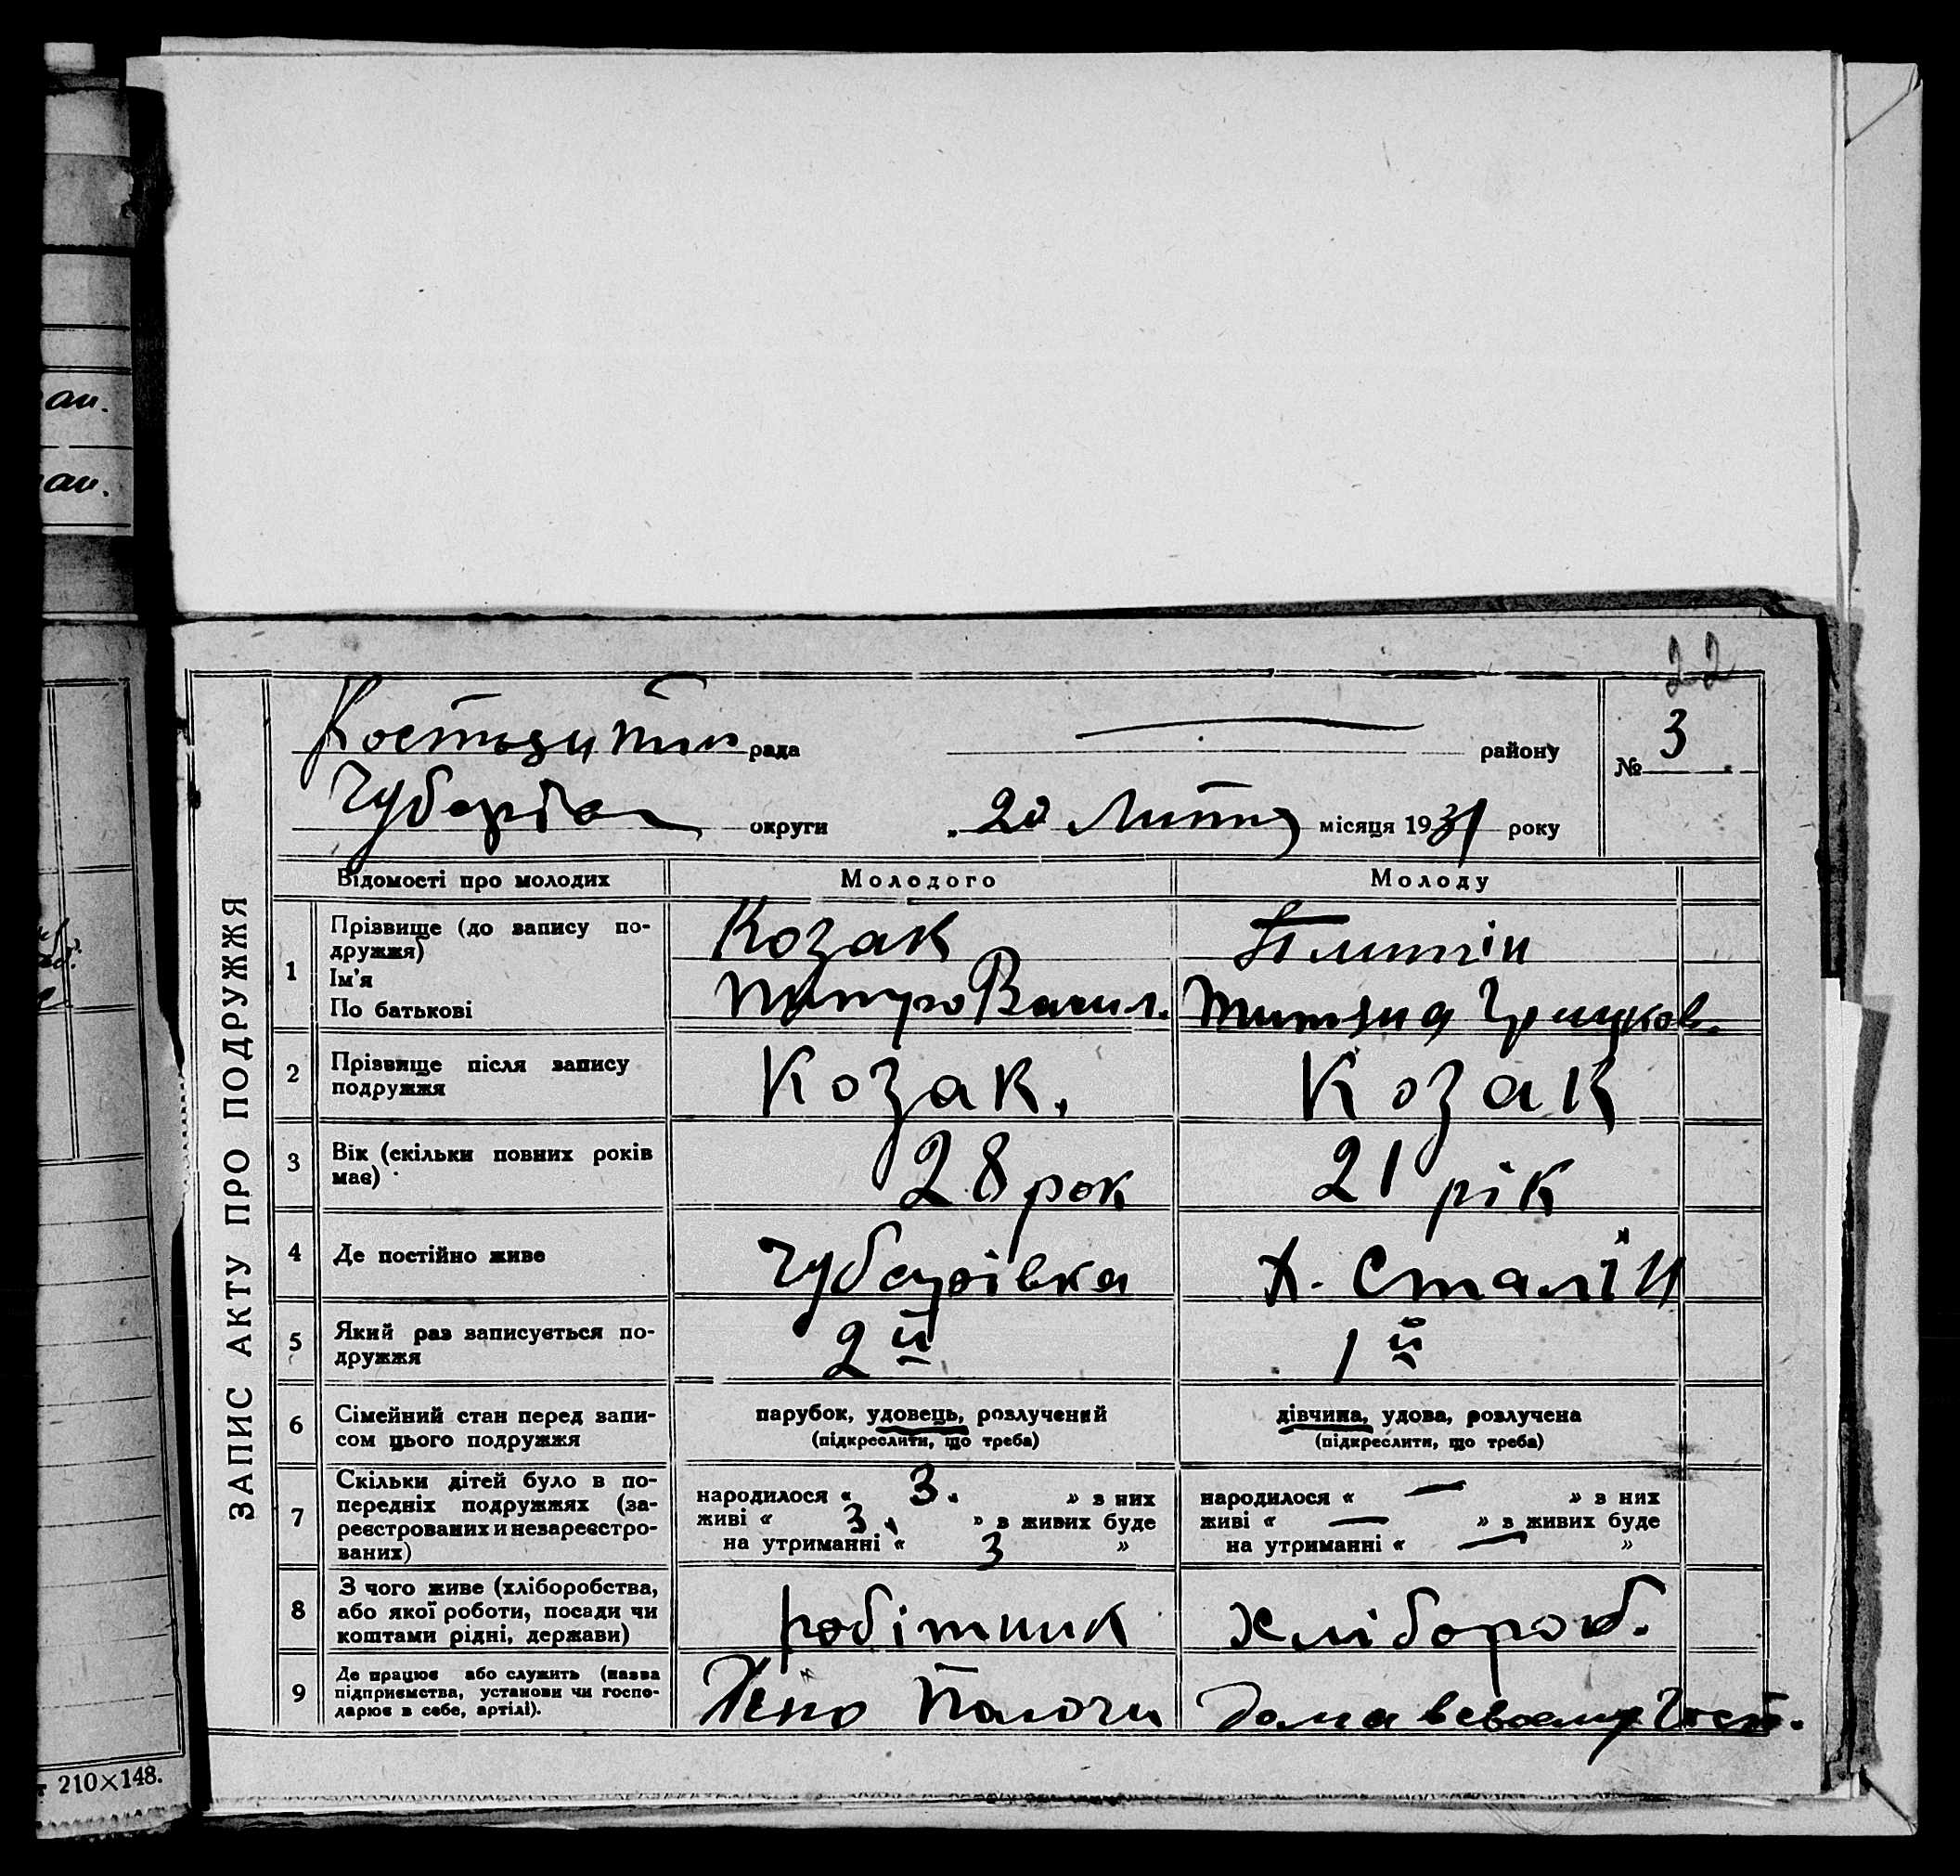 ан.
ан.
22
рада
району
№ 3
округи
20 Лютня місяця 1931 року
ЗАПИС АКТУ ПРО ПОДРУЖЖЯ
Відомості про молодих
Молодого
Молоду
1
Прізвище (до запису по-
дружжя)
Ім'я
По батькові
Козак
Васил.
2
Прізвище після запису
подружжя
Козак.
Козак
3
Вік (скільки повних років
має)
28 рок
21 рік
4
Де постійно живе
Чубарівка
Х. Сталін
5
Який раз записується по-
дружжя
2й
1й
6
Сімейний стан перед запи-
сом цього подружжя
парубок, удовець, розлучений
(підкреслити, що треба)
дівчина, удова, розлучена
(підкреслити, що треба)
7
Скільки дітей було в по-
передніх подружжях (за-
реєстрованих и незареєстро-
ваних)
народилося « 3. » в них
живі « 3. » в живих буде
на утриманні « 3 »
народилося « — » в них
живі « — » в живих буде
на утриманні « — »
8
З чого живе (хліборобства,
або якої роботи, посади чи
коштами рідні, держави)
робітник
хлібороб.
9
Де працює або служить (назва
підприємства, установи чи госпо-
дарює в себе, артілі).
дома в своему госп.
210×148.